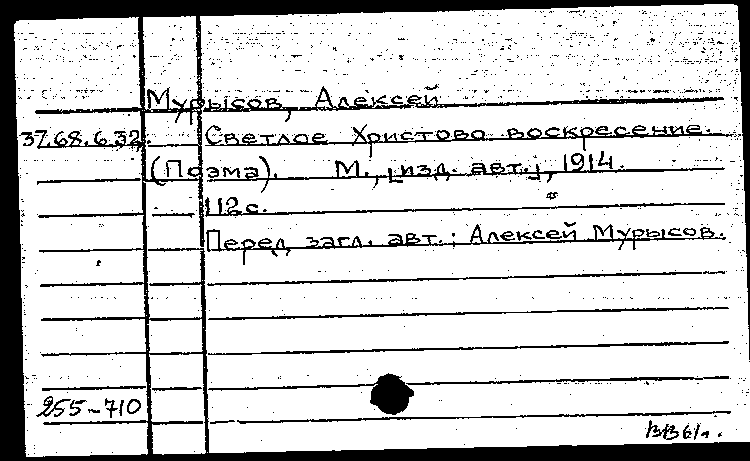 Мурысов, Алексей
37.68.6.32. Светлое Христово воскресение.
(Поэма). М., [изд. авт.], 1914.
112 с.
Перед загл. авт.: Алексей Мурысов.
255-710